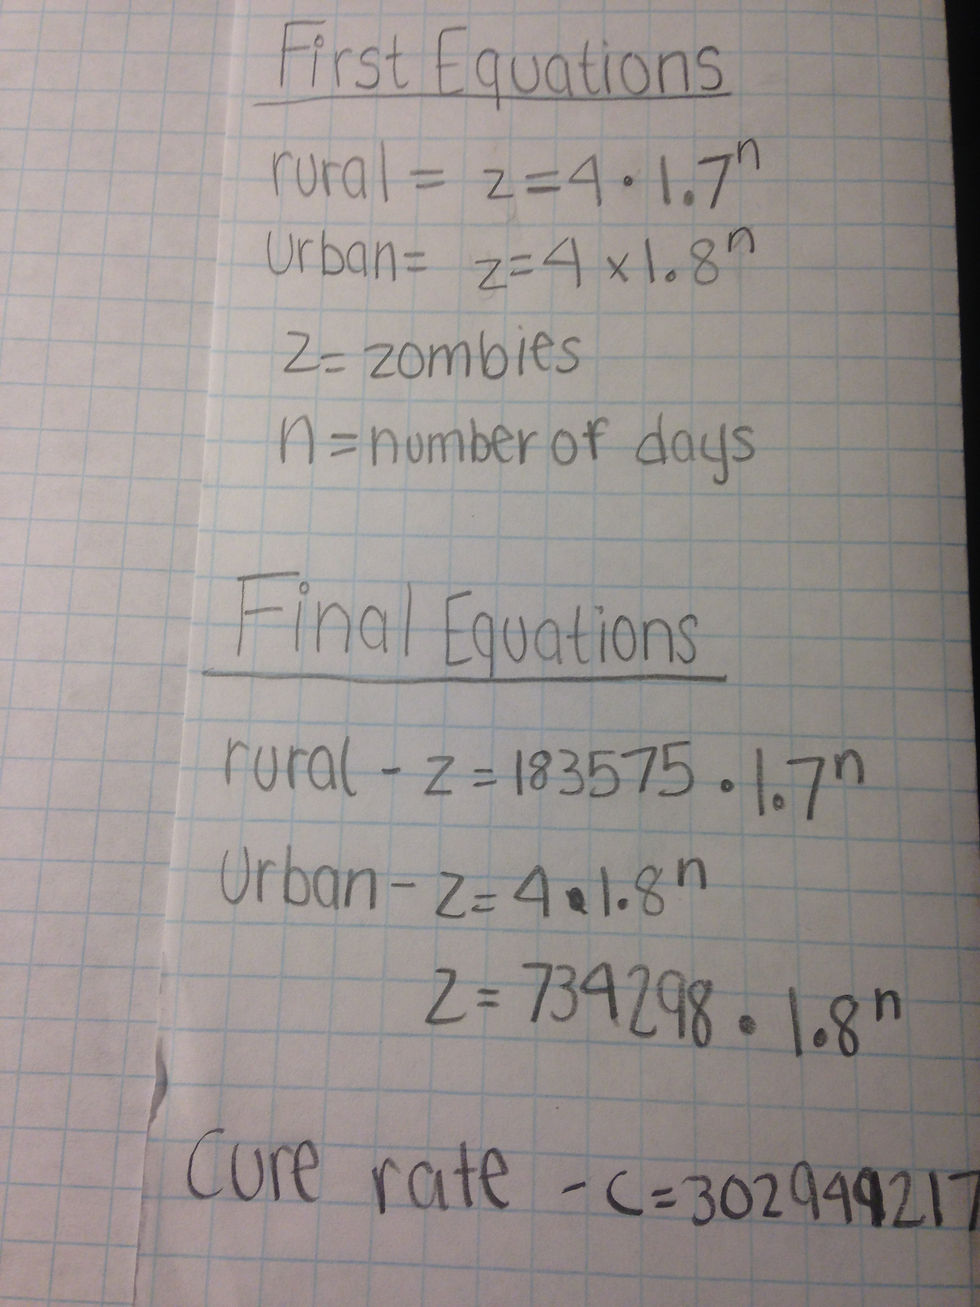 First Equations
rural = z=4·1.7ⁿ
Urban= z=4×1.8ⁿ
z= zombies
n=number of days
Final Equations
rural - z=183575·1.7ⁿ
Urban - z=4·1.8ⁿ
z=734298·1.8ⁿ
Cure rate - c=302949217